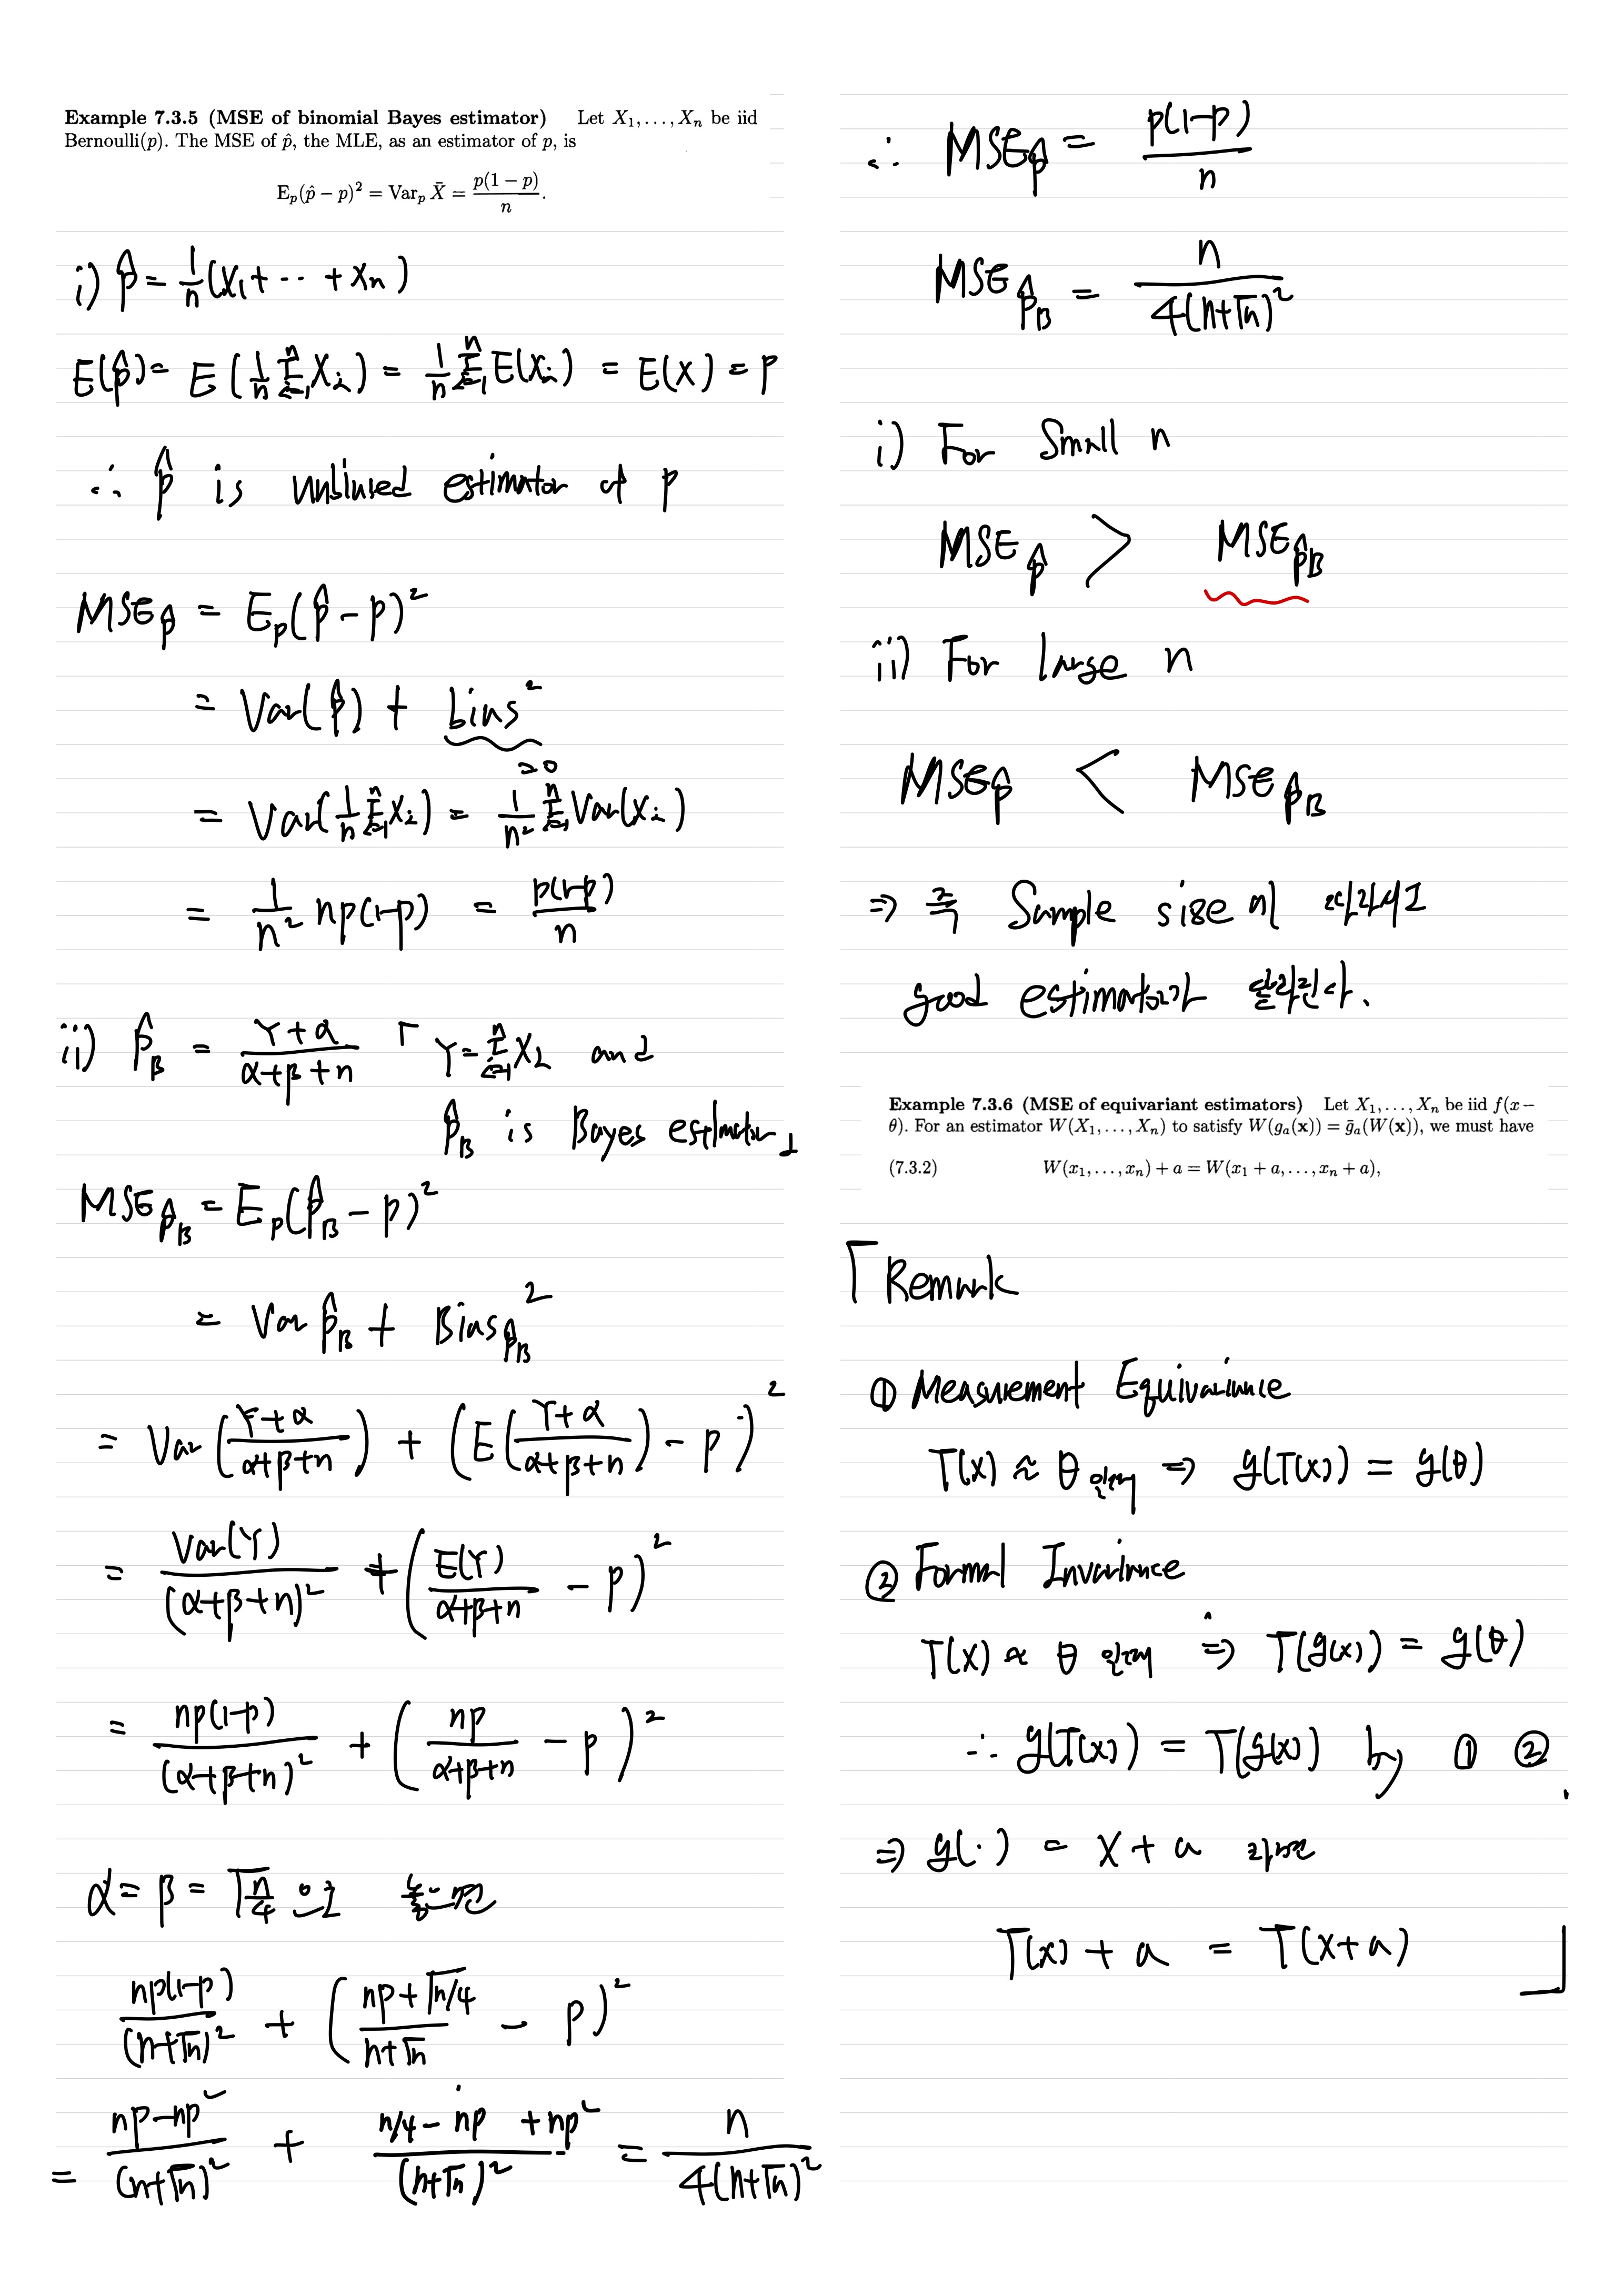 Example 7.3.5 (MSE of binomial Bayes estimator) Let X₁, ..., Xₙ be iid
Bernoulli(p). The MSE of p̂, the MLE, as an estimator of p, is
Eₚ(p̂ − p)² = Varₚ X̄ = p(1 − p)/n.
i) p̂ = 1/n (X₁ + ⋯ + Xₙ)
E(p̂) = E(1/n Σᵢ₌₁ⁿ Xᵢ) = 1/n Σᵢ₌₁ⁿ E(Xᵢ) = E(X) = p
∴ p̂ is unbiased estimator of p
MSE_p̂ = Eₚ(p̂ − p)²
= Var(p̂) + bias²
= 0
= Var(1/n Σᵢ₌₁ⁿ Xᵢ) = 1/n² Σᵢ₌₁ⁿ Var(Xᵢ)
= 1/n² np(1−p) = p(1−p)/n
ii) p̂_B = (Y+α)/(α+β+n) ┌ Y = Σᵢ₌₁ⁿ Xᵢ and
p̂_B is Bayes estimator ┘
MSE_p̂_B = Eₚ(p̂_B − p)²
= Var p̂_B + Bias_p̂_B²
= Var((Y+α)/(α+β+n)) + (E((Y+α)/(α+β+n)) − p)²
= Var(Y)/(α+β+n)² + (E(Y)/(α+β+n) − p)²
= np(1−p)/(α+β+n)² + (np/(α+β+n) − p)²
α = β = √(n/4) 으로 놓으면
np(1−p)/(n+√n)² + ((np+√n/4)/(n+√n) − p)²
= (np−np²)/(n+√n)² + (n/4 − np + np²)/(n+√n)² = n/(4(n+√n)²)
∴ MSE_p̂ = p(1−p)/n
MSE_p̂_B = n/(4(n+√n)²)
i) For Small n
MSE_p̂ > MSE_p̂_B
ii) For large n
MSE_p̂ < MSE_p̂_B
⇒ 즉 Sample size에 따라서
good estimator가 달라진다.
Example 7.3.6 (MSE of equivariant estimators) Let X₁, ..., Xₙ be iid f(x −
θ). For an estimator W(X₁, ..., Xₙ) to satisfy W(gₐ(x)) = ḡₐ(W(x)), we must have
(7.3.2) W(x₁, ..., xₙ) + a = W(x₁ + a, ..., xₙ + a),
┌ Remark
① Measurement Equivariance
T(x) ≈ θ 일때 ⇒ g(T(x)) = g(θ)
② Formal Invariance
T(x) ≈ θ 일때 ⇒ T(g(x)) = g(θ)
∴ g(T(x)) = T(g(x)) by ① ②.
⇒ g(·) = X + a 라면
T(x) + a = T(x+a) ┘